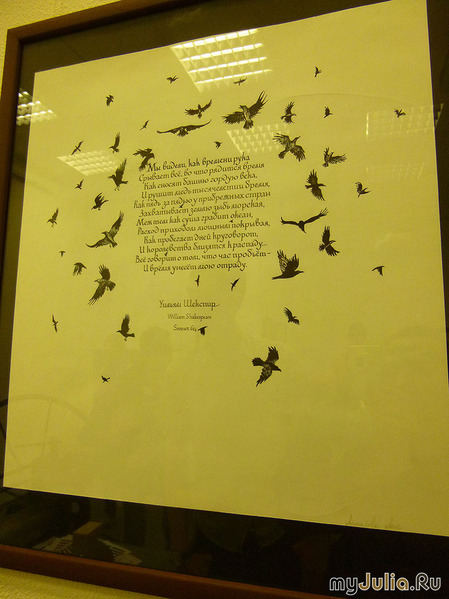 Мы видели, как времени рука
Срывает всё, во что рядится время
Как сносят башню гордую века,
И рушит медь тысячелетий бремя,
Как пядь за пядью у прибрежных стран
Захватывает землю зыбь морская,
Меж тем как суша грабит океан,
Расход приходом мощным покрывая,
Как пробегает дней круговорот,
И королевства близятся к распаду...
Всё говорит о том, что час пробьёт -
И время унесёт мою отраду.
Уильям Шекспир
William Shakespeare
Sonnet 64
myJulia.Ru